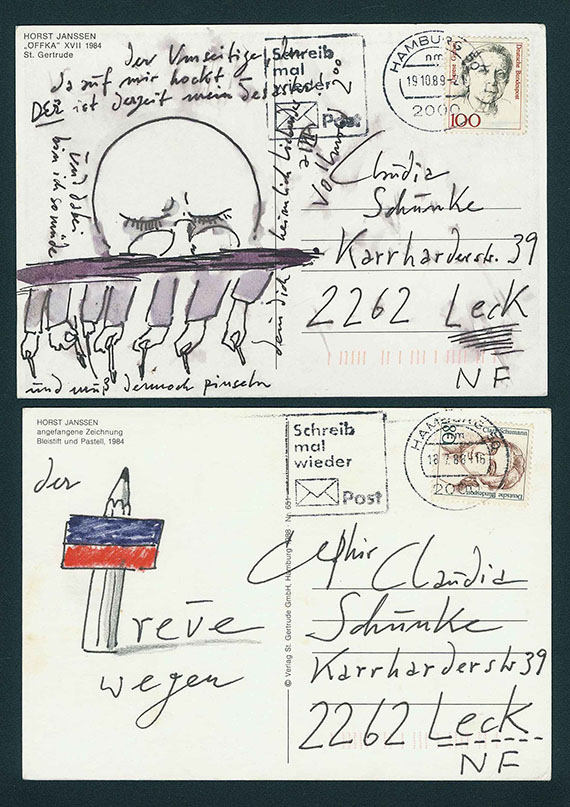 HORST JANSSEN
„OFFKA" XVII 1984
St. Gertrude
der Umseitige, der
da auf mir hockt
DER ist derzeit mein
und dabei
bin ich so müde
und muß dennoch pinseln
dein dich heimlich
Schreib
mal
wieder
Post
HAMBURG
19.10.89-21
2000
Deutsche Bundespost
100
Claudia
Schünke
Karrharderstr. 39
2262 Leck
NF
HORST JANSSEN
angefangene Zeichnung
Bleistift und Pastell, 1984
der
Treüe
wegen
© Verlag St. Gertrude GmbH, Hamburg 1988 · Nr. 651
Schreib
mal
wieder
Post
HAMBURG
18.7.88-16
2000
Deutsche Bundespost
80
Claudia
Schünke
Karrharderstr 39
2262 Leck
NF